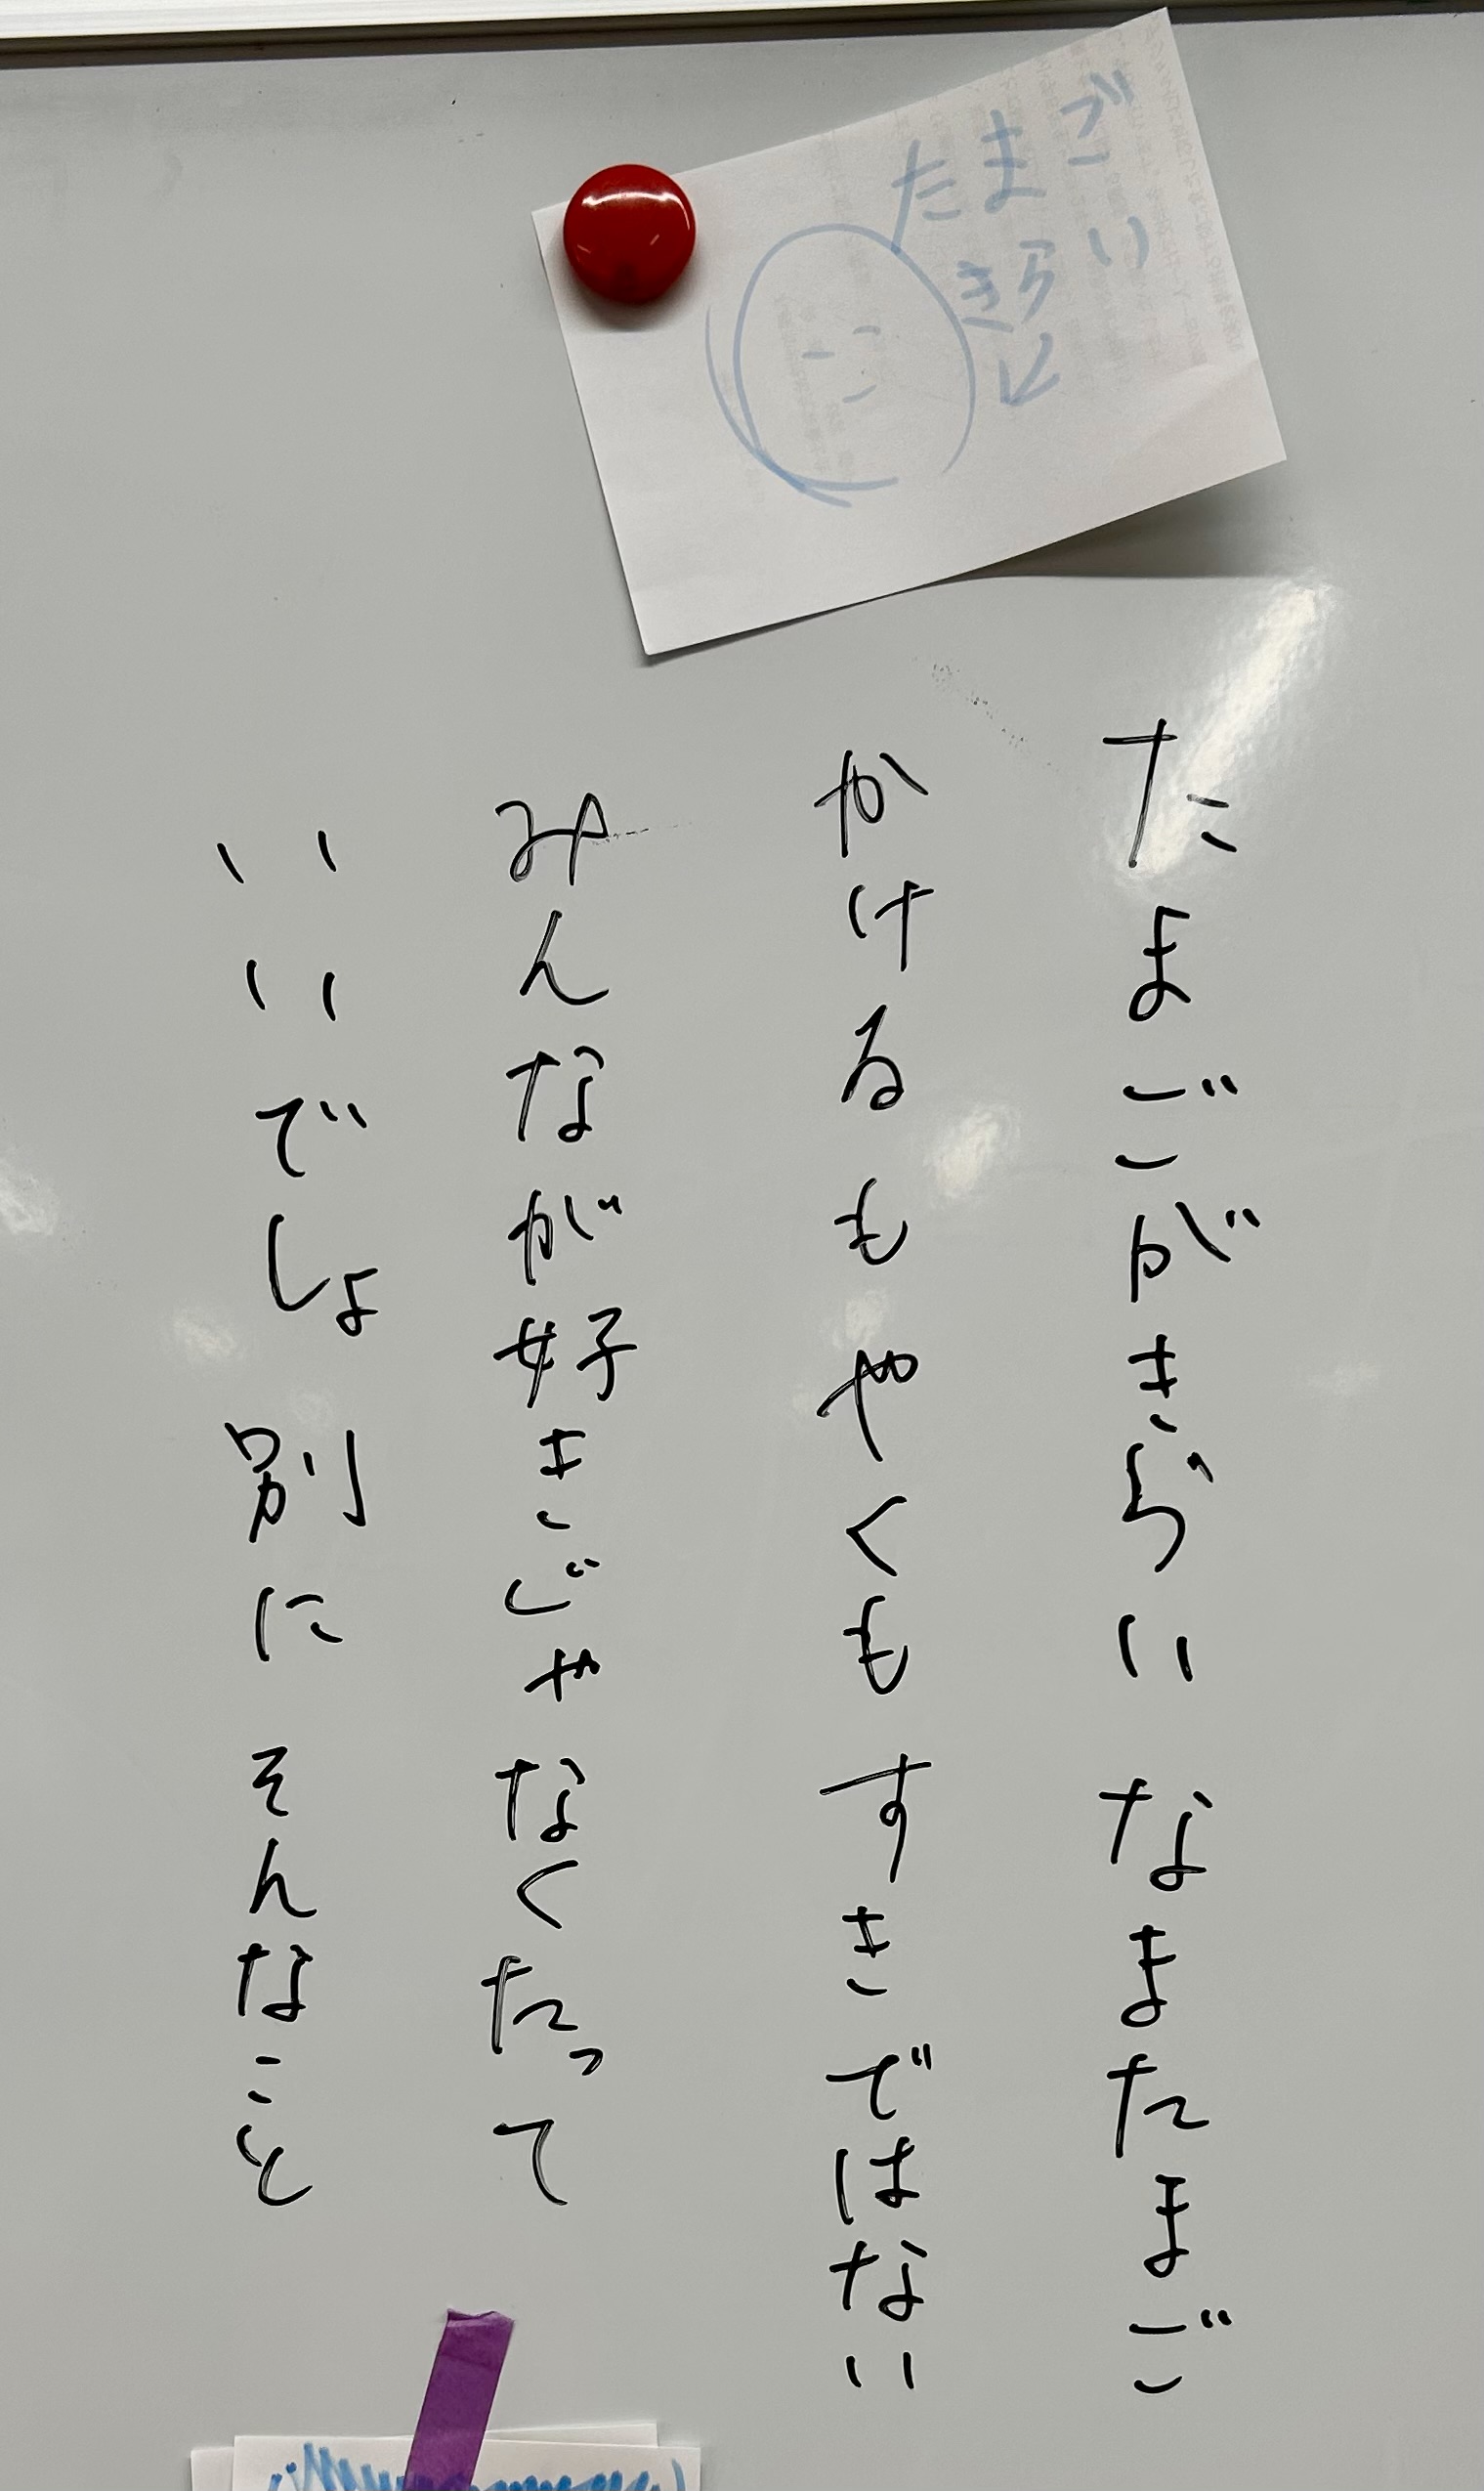 たまご
きらい
たまごがきらい なまたまご
かけるも やくも すきではない
みんなが好きじゃなくたって
いいでしょ 別に そんなこと